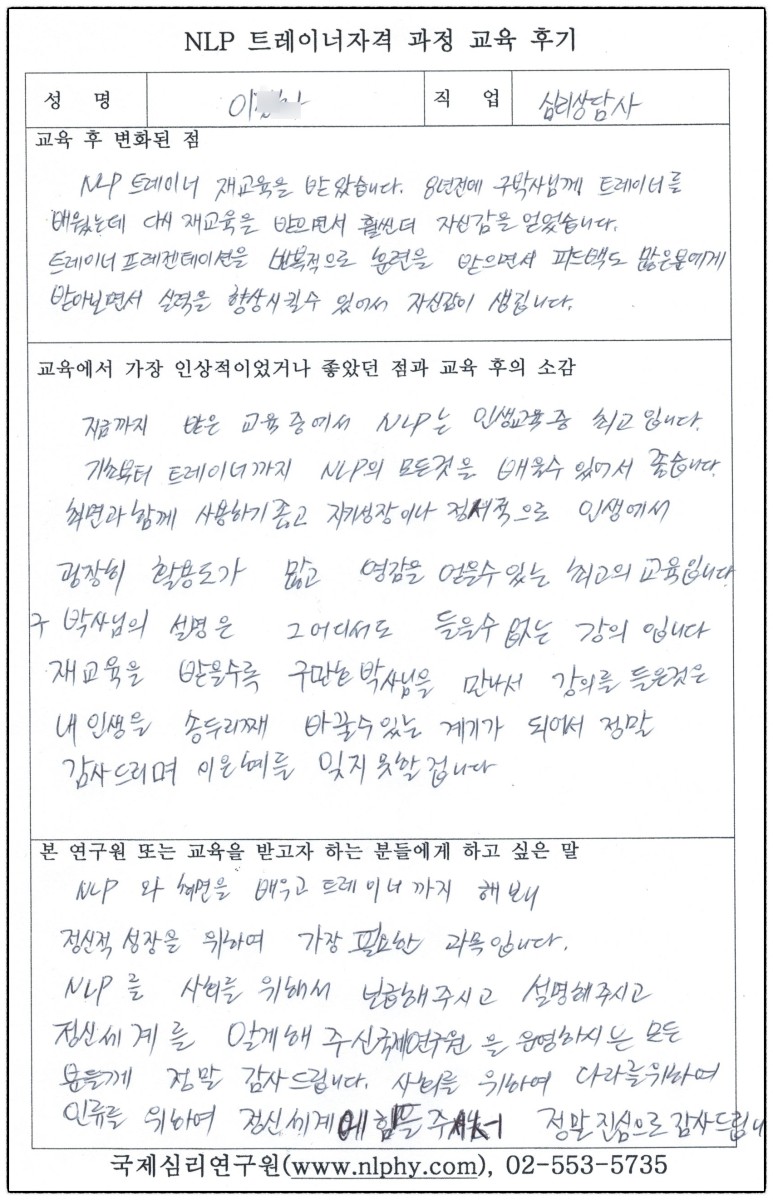 NLP 트레이너자격 과정 교육 후기
성 명 이 직 업 심리상담사
교육 후 변화된 점
NLP 트레이너 재교육을 받았습니다. 8년전에 구박사님께 트레이너를
배웠는데 다시 재교육을 받으면서 훨씬더 자신감을 얻었습니다.
트레이너 프레젠테이션을 반복적으로 훈련을 받으면서 피드백도 많은분에게
받아보면서 실력을 향상시킬수 있어서 자신감이 생깁니다.
교육에서 가장 인상적이었거나 좋았던 점과 교육 후의 소감
지금까지 받은 교육중에서 NLP는 인생교육중 최고입니다.
기초부터 트레이너까지 NLP의 모든것을 배울수 있어서 좋습니다.
최면과 함께 사용하기좋고 자기성장이나 정서적으로 인생에서
굉장히 활용도가 많고 영감을 얻을수있는 최고의 교육입니다
구 박사님의 설명은 그어디서도 들을수 없는 강의 입니다
재교육을 받을수록 구만호박사님을 만나서 강의를 들은것은
내 인생을 송두리째 바꿀수있는 계기가 되어서 정말
감사드리며 이은혜를 잊지 못할겁니다
본 연구원 또는 교육을 받고자 하는 분들에게 하고 싶은 말
NLP 와 최면을 배우고 트레이너까지 해보니
정신적 성장을 위하여 가장 필요한 과목입니다.
NLP를 사회를 위해서 보급해주시고 설명해주시고
정신세계를 알게해 주신국제연구원 을 운영하시는 모든
분들께 정말 감사드립니다. 사회를 위하여 나라를위하여
인류를 위하여 정신세계에 힘을 주셔서 정말 진심으로 감사드립니
국제심리연구원(www.nlphy.com), 02-553-5735